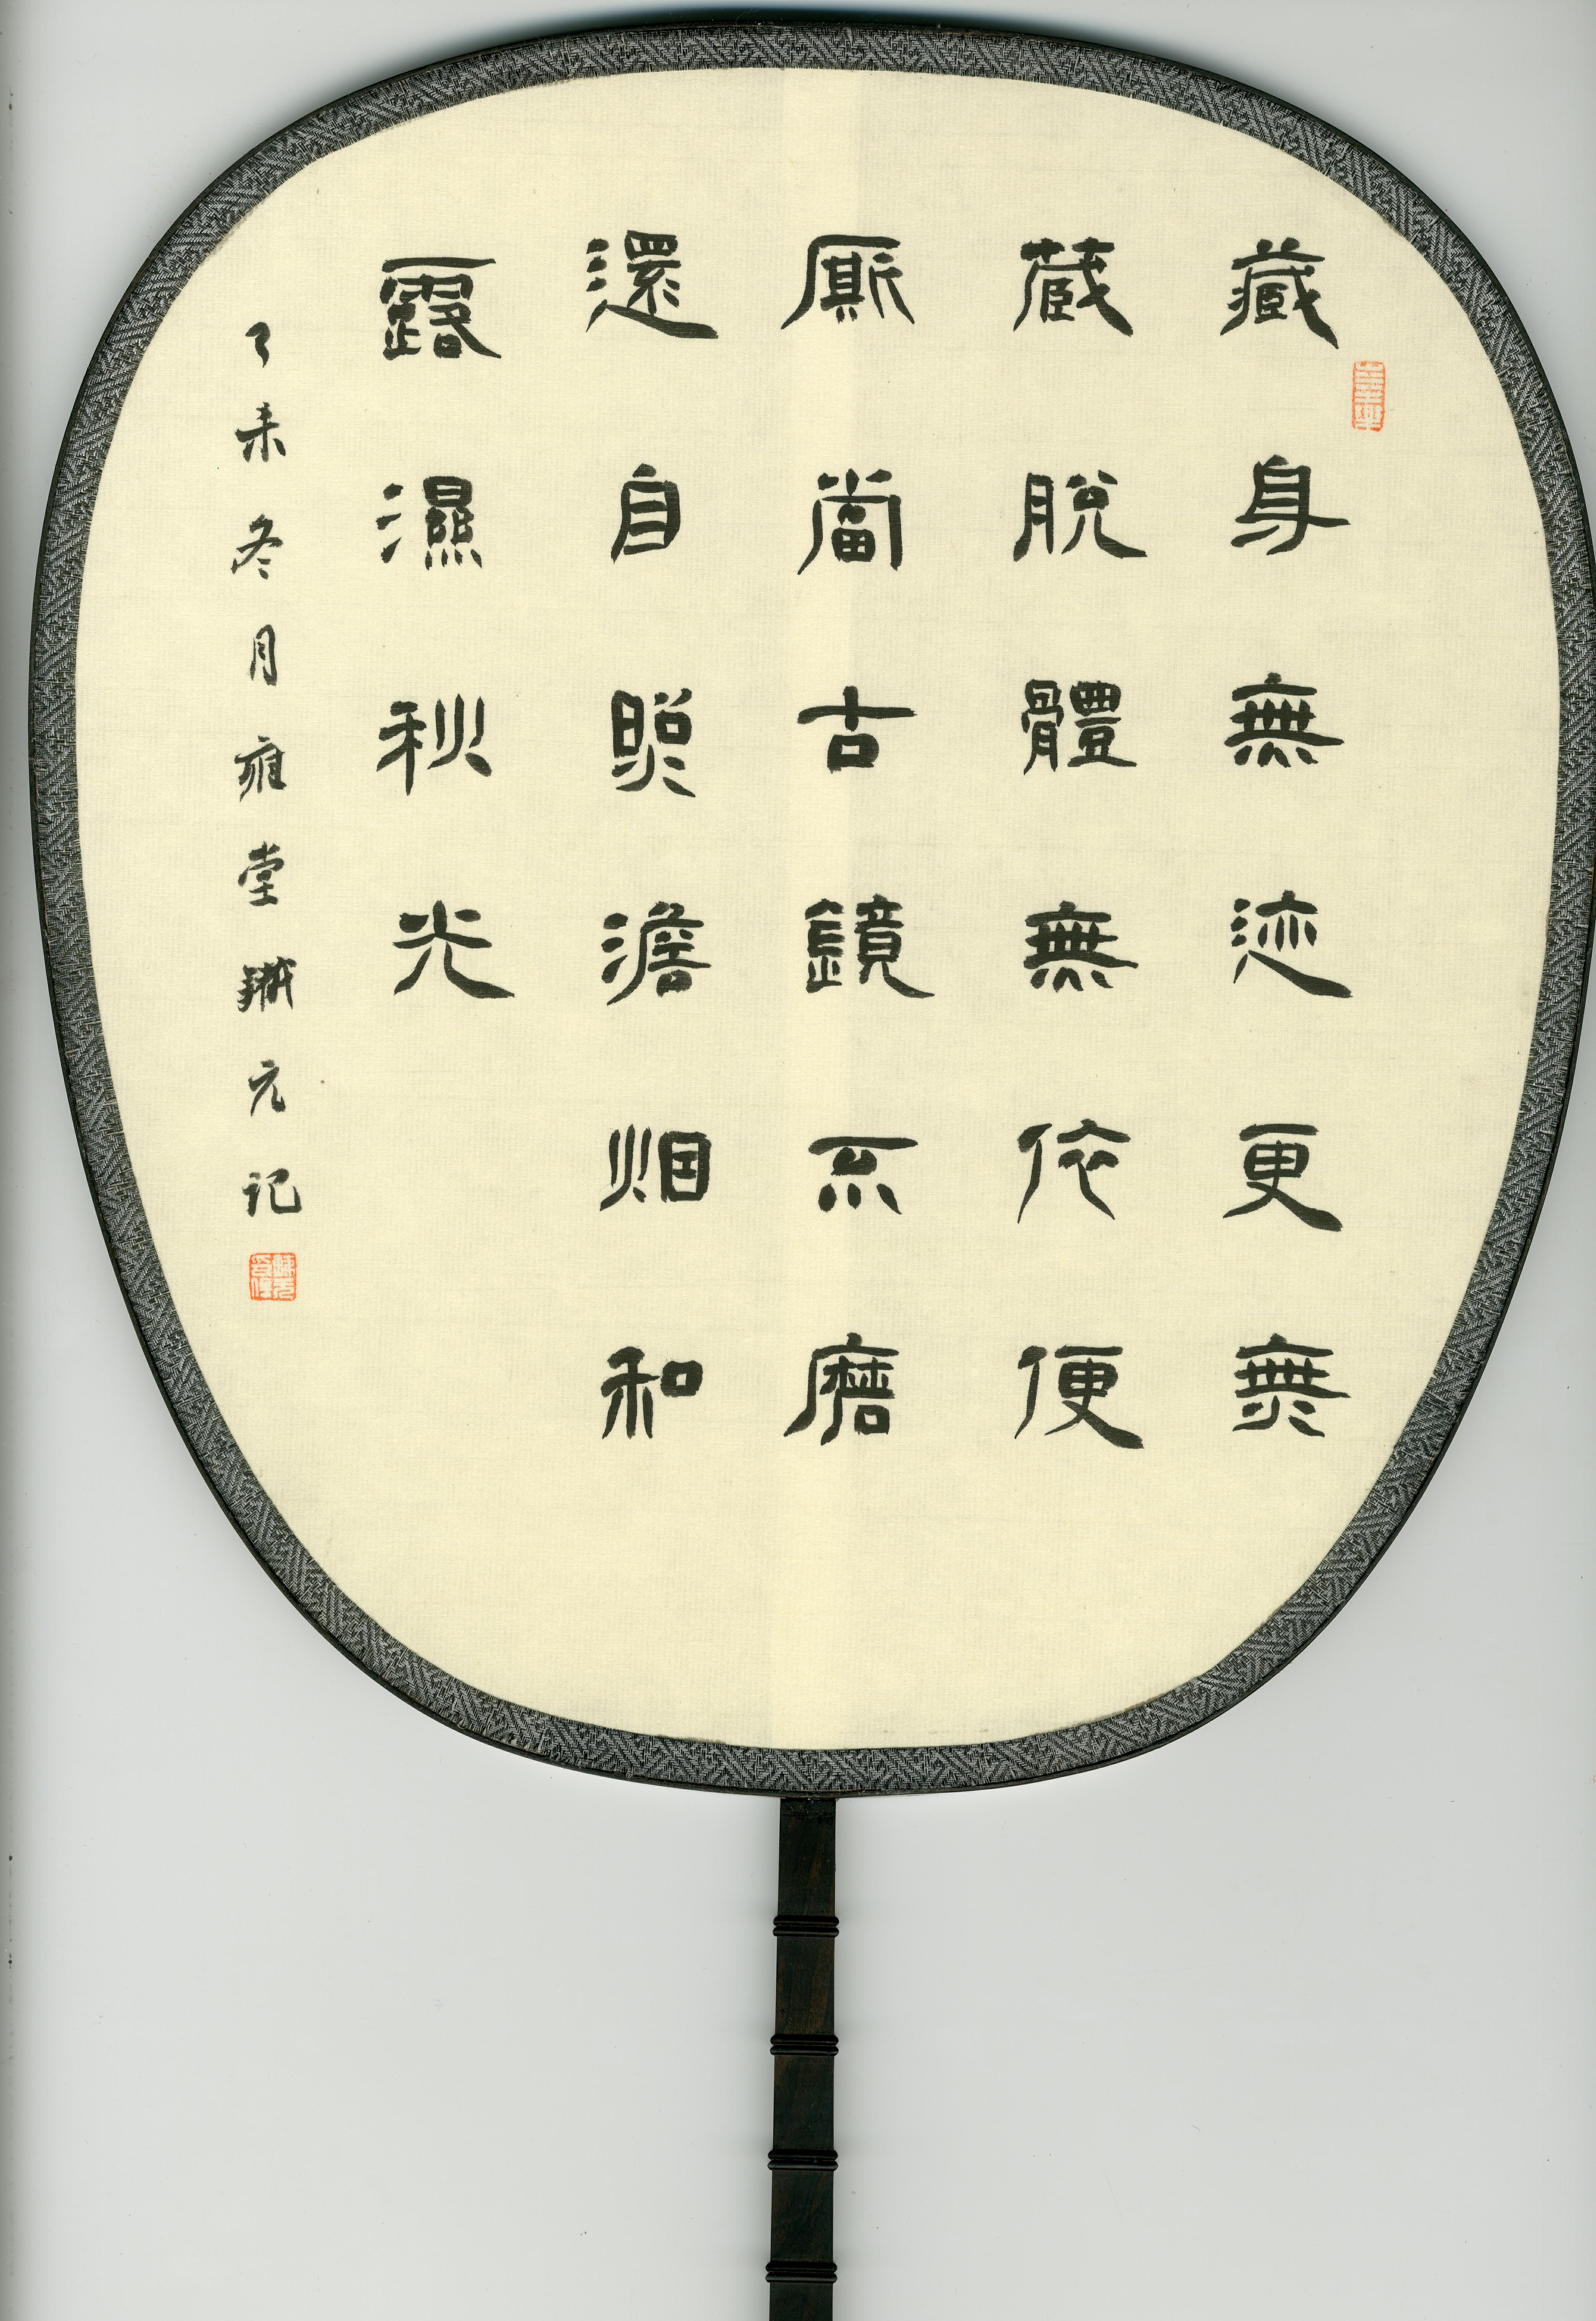 藏身無迹更無
藏脫體無依便
厮當古鏡不磨
還自照澹烟和
露濕秋光
丁未冬月雍堂元记